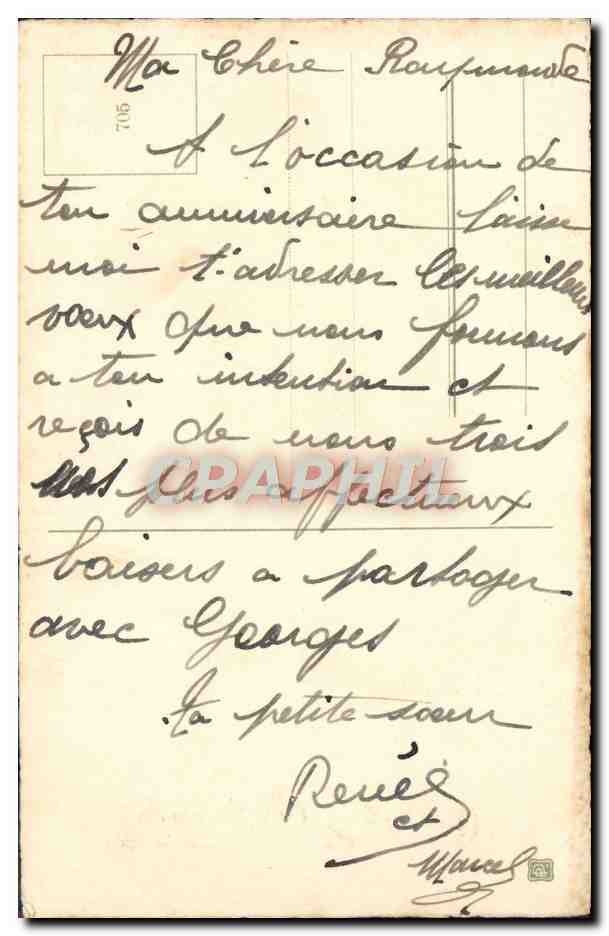 Ma Chère Raymonde
705
A l'occasion de
ton anniversaire laisse
moi t'adresser les meilleurs
voeux que nous formons
a ton intention et
reçois de nous trois
nos plus affectueux
CPAPHIL
baisers a partager
avec Georges
Ta petite soeur
Renée
et
Marcel